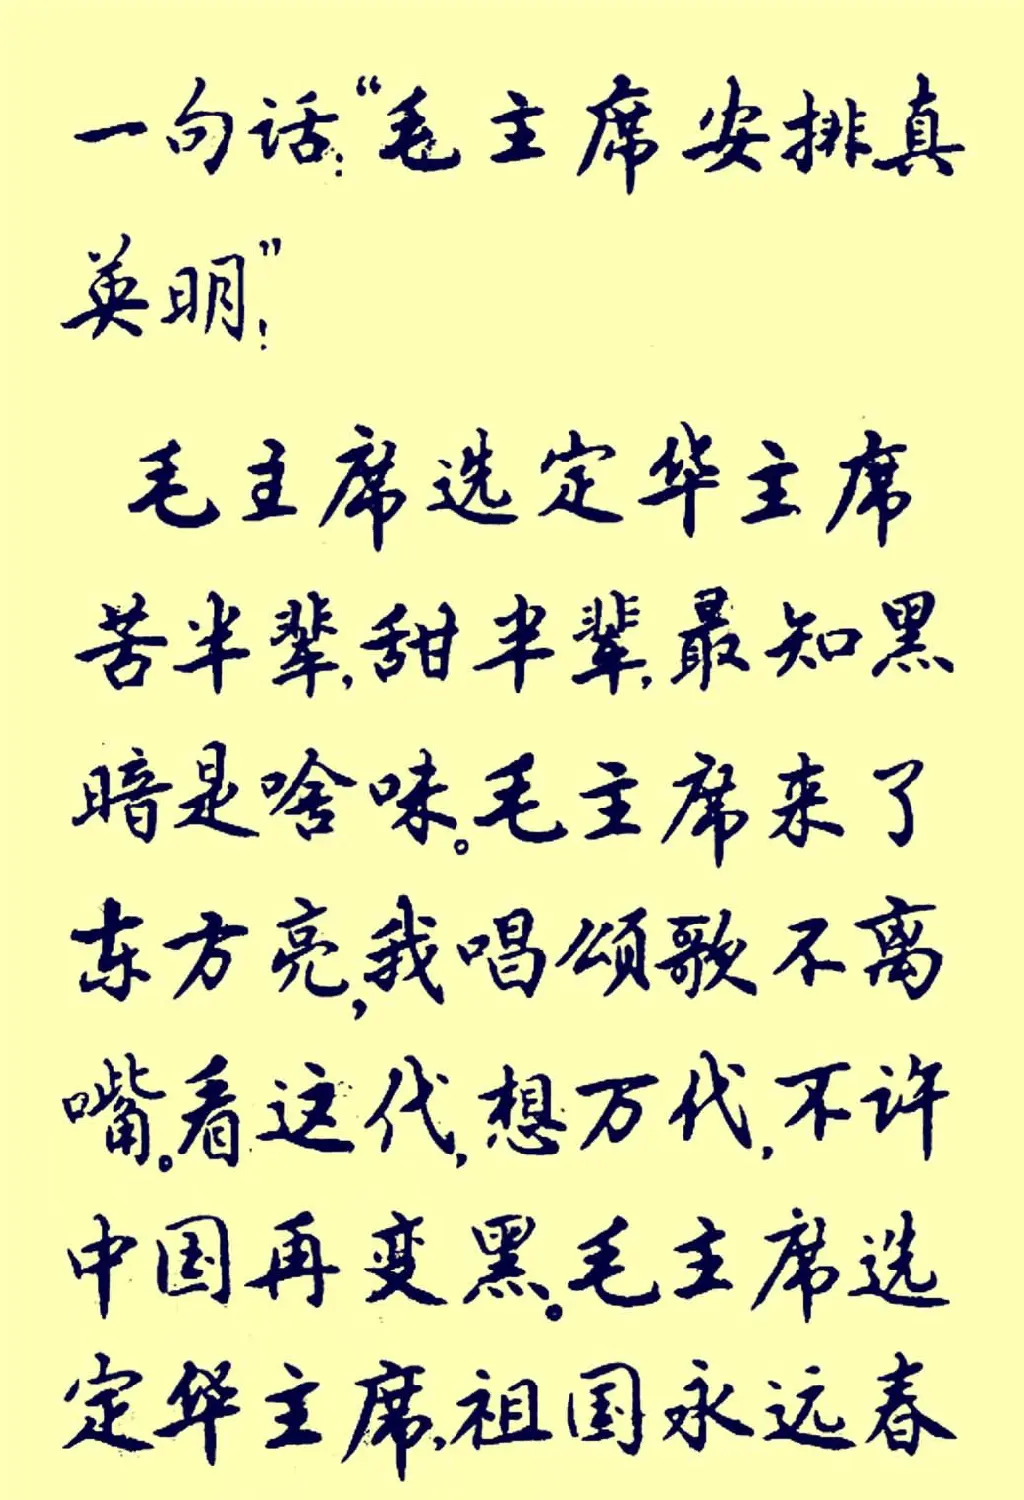 一句话:“毛主席安排真
英明”!
毛主席选定华主席
苦半辈,甜半辈,最知黑
暗是啥味。毛主席来了
东方亮,我唱颂歌不离
嘴。看这代,想万代,不许
中国再变黑。毛主席选
定华主席,祖国永远春